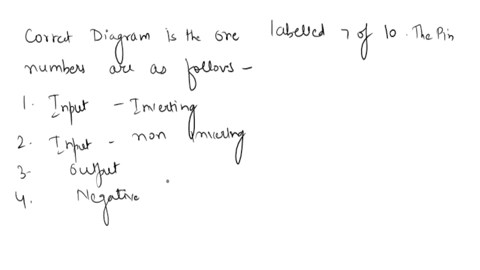 Correct Diagram is the one labelled 7 of 10. The Pin
numbers are as follows -
1. Input - Inverting
2. Input - non inverting
3- output
4. Negative